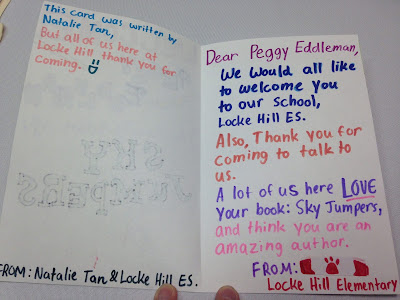 This card was written by
Natalie Tan,
But all of us here at
Locke Hill thank you for
coming.
SKY
JUMPERS
FROM: Natalie Tan & Locke Hill ES.
Dear Peggy Eddleman,
We Would all like
to welcome you
to our school,
Locke Hill ES.
Also, Thank you for
coming to talk to
us.
A lot of us here LOVE
your book: Sky Jumpers,
and think you are an
amazing author.
FROM:
Locke Hill Elementary